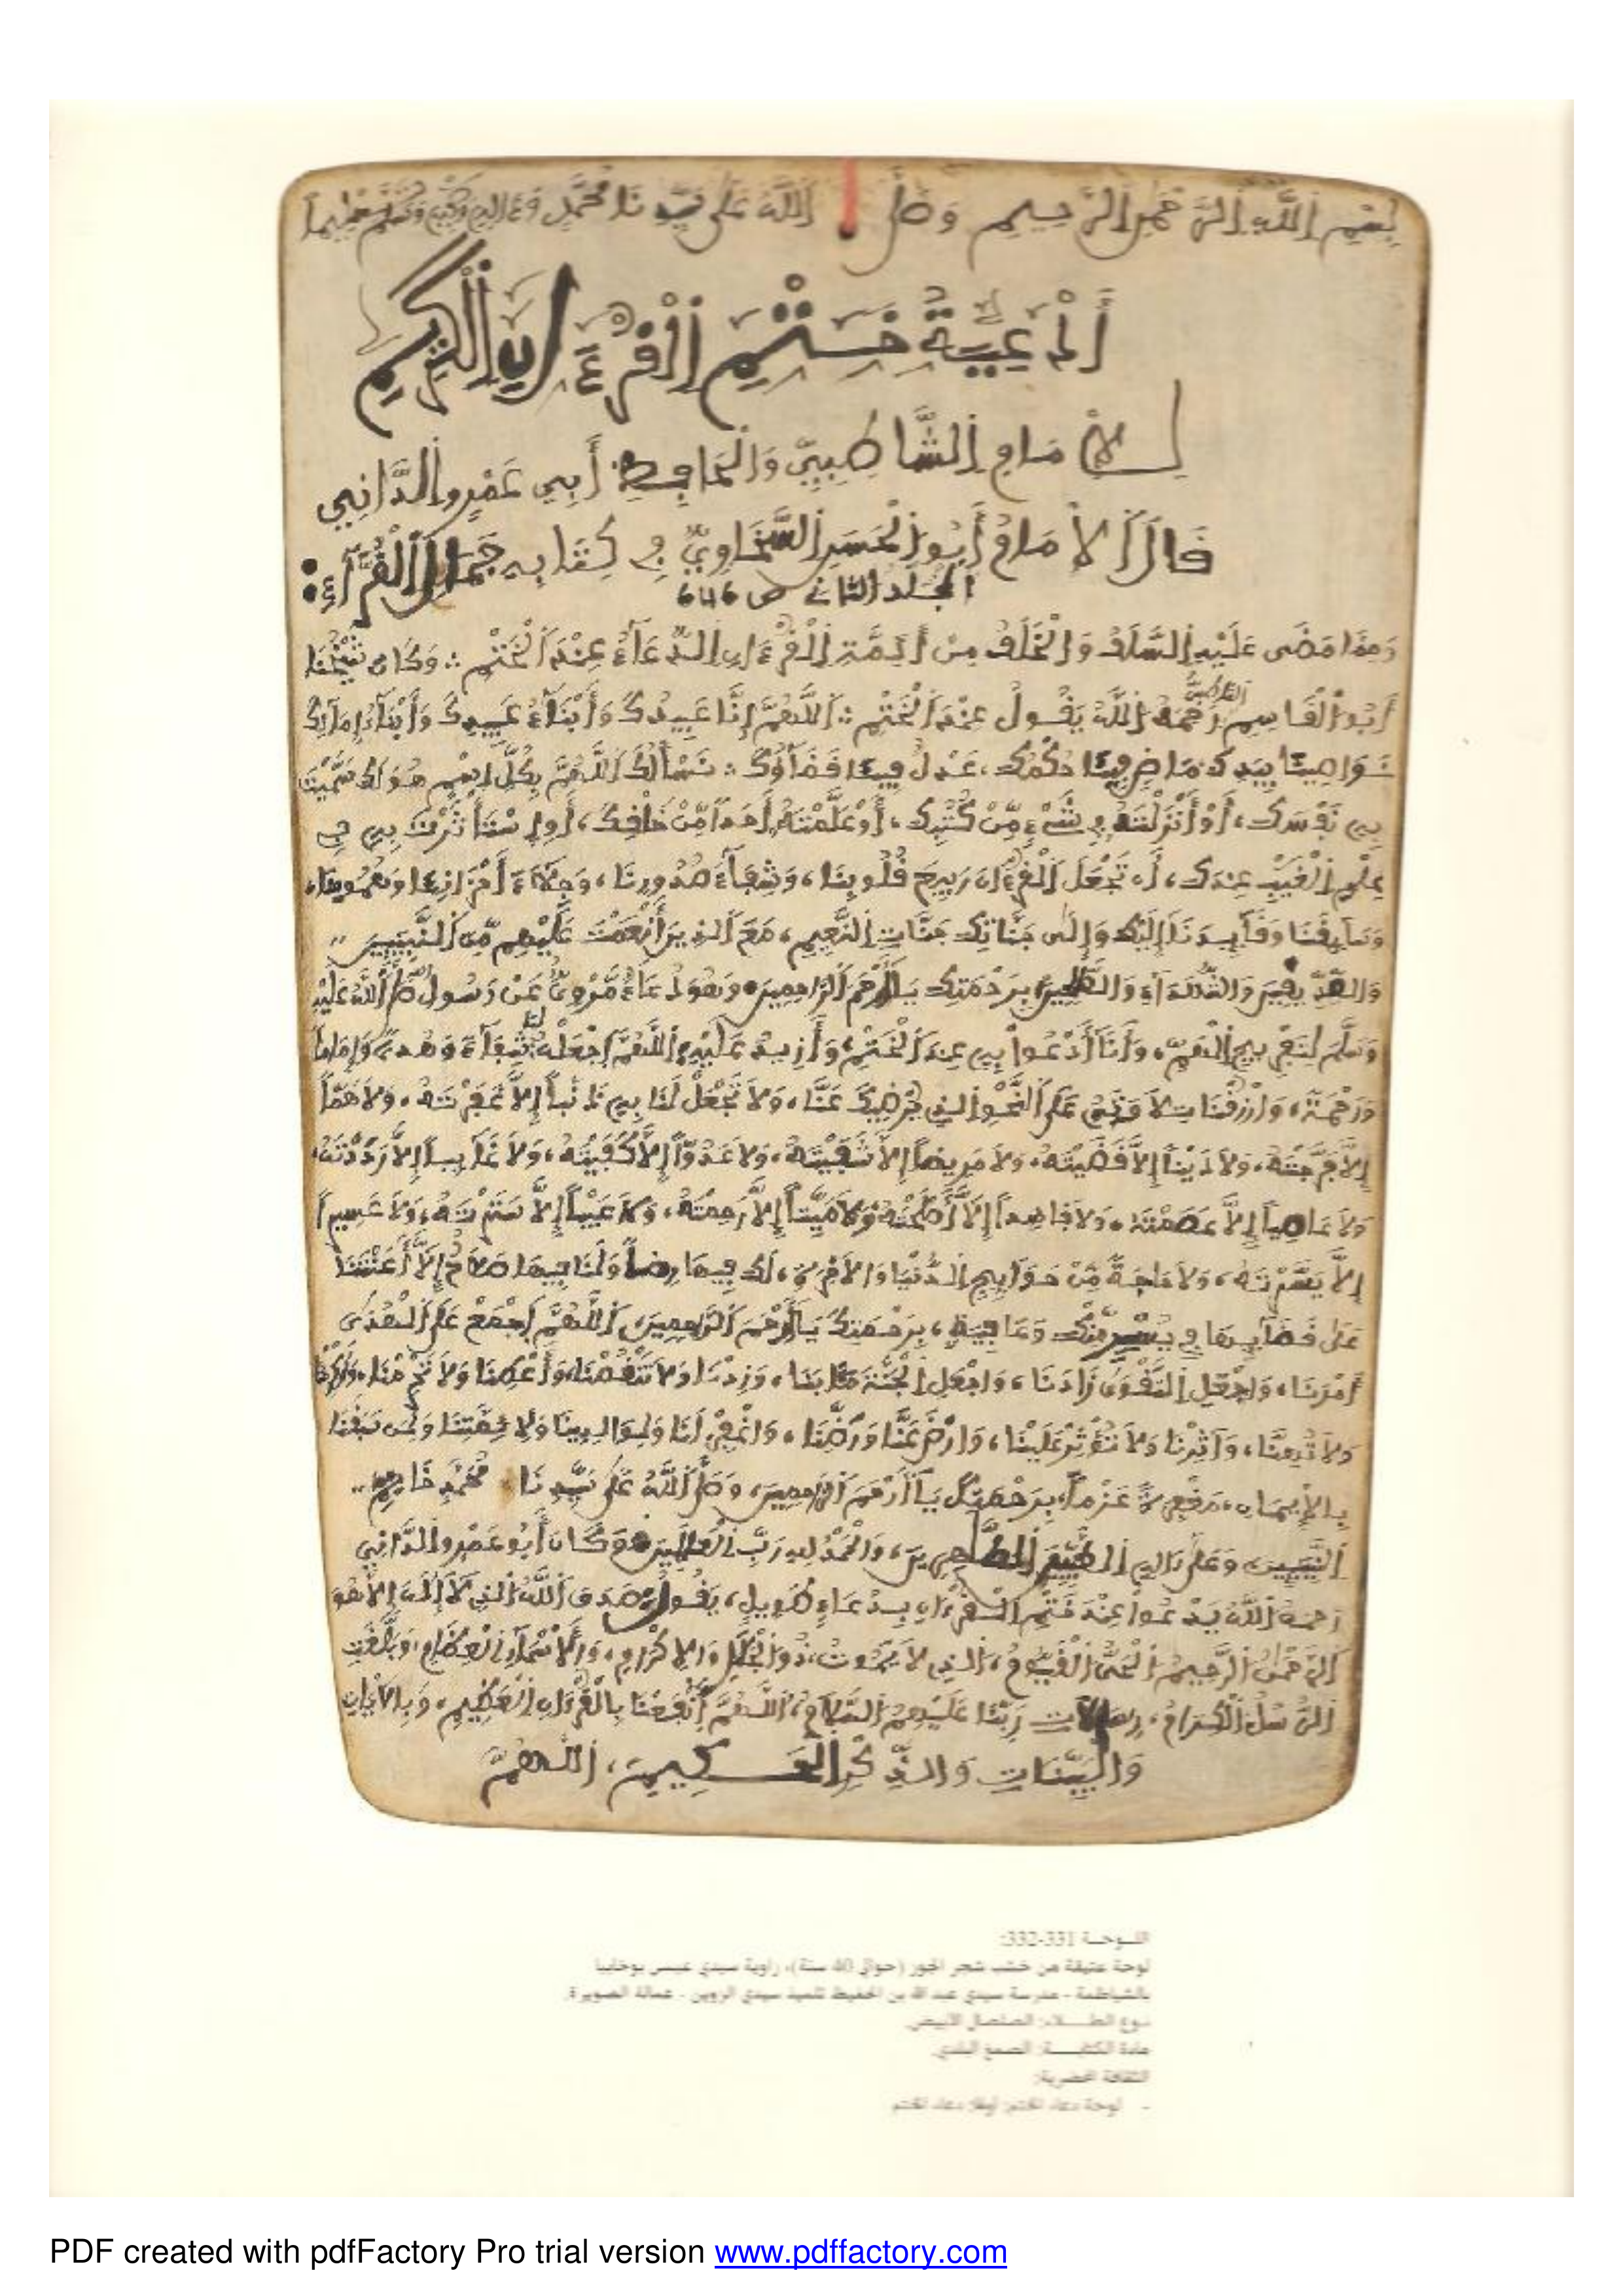 بِسْمِ اللَّهِ الرَّحْمَٰنِ الرَّحِيمِ وَصَلَّى اللَّهُ عَلَى سَيِّدِنَا مُحَمَّدٍ وَعَلَى آلِهِ وَصَحْبِهِ وَسَلَّمَ تَسْلِيماً
أَدْعِيَةُ خَتْمِ الْقُرْءَانِ الْكَرِيمِ
لِلْإِمَامِ الشَّاطِبِيِّ وَالْحَافِظِ أَبِي عَمْرٍو الدَّانِي
قَالَ الْإِمَامُ أَبُو الْحَسَنِ السَّخَاوِيُّ فِي كِتَابِهِ جَمَالُ الْقُرَّاءِ:
المجلد الثاني ص 646
وَمِمَّا مَضَى عَلَيْهِ السَّلَفُ وَالْخَلَفُ مِنْ أَئِمَّةِ الْقُرْءَانِ الدُّعَاءُ عِنْدَ الْخَتْمِ ∴ وَكَانَ شَيْخُنَا
أَبُو الْقَاسِمِ الشَّاطِبِيُّ رَحِمَهُ اللَّهُ يَقُولُ عِنْدَ الْخَتْمِ ∴ اللَّهُمَّ إِنَّا عَبِيدُكَ وَأَبْنَاءُ عَبِيدِكَ وَأَبْنَاءُ إِمَائِكَ
نَوَاصِينَا بِيَدِكَ مَاضٍ فِينَا حُكْمُكَ، عَدْلٌ فِينَا قَضَاؤُكَ ∴ نَسْأَلُكَ اللَّهُمَّ بِكُلِّ اسْمٍ هُوَ لَكَ سَمَّيْتَ
بِهِ نَفْسَكَ، أَوْ أَنْزَلْتَهُ فِي شَيْءٍ مِّنْ كُتُبِكَ، أَوْ عَلَّمْتَهُ أَحَداً مِّنْ خَلْقِكَ، أَوِ اسْتَأْثَرْتَ بِهِ فِي
عِلْمِ الْغَيْبِ عِنْدَكَ، أَن تَجْعَلَ الْقُرْءَانَ رَبِيعَ قُلُوبِنَا، وَشِفَاءَ صُدُورِنَا، وَجِلَاءَ أَحْزَانِنَا وَهُمُومِنَا،
وَسَائِقَنَا وَقَائِدَنَا إِلَيْكَ وَإِلَى جَنَّاتِكَ جَنَّاتِ النَّعِيمِ، مَعَ الَّذِينَ أَنْعَمْتَ عَلَيْهِم مِّنَ النَّبِيِّينَ
وَالصِّدِّيقِينَ وَالشُّهَدَاءِ وَالصَّالِحِينَ بِرَحْمَتِكَ يَا أَرْحَمَ الرَّاحِمِينَ. وَهُوَ دُعَاءٌ مَّرْوِيٌّ عَنْ رَسُولِ اللَّهِ صَلَّى اللَّهُ عَلَيْهِ
وَسَلَّمَ لِتَفْرِيجِ الْهَمِّ، وَأَنَا أَدْعُوا بِهِ عِنْدَ الْخَتْمِ، وَأَزِيدُ عَلَيْهِ: اللَّهُمَّ اجْعَلْهُ لَنَا شِفَاءً وَهُدىً وَإِمَاماً
وَرَحْمَةً، وَارْزُقْنَا تِلَاوَتَهُ عَلَى النَّحْوِ الَّذِي يُرْضِيكَ عَنَّا، وَلَا تَجْعَلْ لَنَا بِهِ ذَنْباً إِلَّا غَفَرْتَهُ، وَلَا هَمّاً
إِلَّا فَرَّجْتَهُ، وَلَا دَيْناً إِلَّا قَضَيْتَهُ، وَلَا مَرِيضاً إِلَّا شَفَيْتَهُ، وَلَا عَدُوّاً إِلَّا كَفَيْتَهُ، وَلَا غَائِباً إِلَّا رَدَدْتَهُ،
وَلَا عَاصِياً إِلَّا عَصَمْتَهُ، وَلَا فَاسِداً إِلَّا أَصْلَحْتَهُ وَلَا مَيِّتاً إِلَّا رَحِمْتَهُ، وَلَا عَيْباً إِلَّا سَتَرْتَهُ، وَلَا عَسِيراً
إِلَّا يَسَّرْتَهُ، وَلَا حَاجَةً مِّنْ حَوَائِجِ الدُّنْيَا وَالْآخِرَةِ، لَكَ فِيهَا رِضاً وَلَنَا فِيهَا صَلَاحٌ إِلَّا أَعَنْتَنَا
عَلَى قَضَائِهَا فِي يُسْرٍ مِّنْكَ وَعَافِيَةٍ، بِرَحْمَتِكَ يَا أَرْحَمَ الرَّاحِمِينَ، اللَّهُمَّ اجْمَعْ عَلَى الْهُدَى
أَمْرَنَا، وَاجْعَلِ التَّقْوَى زَادَنَا، وَاجْعَلِ الْجَنَّةَ مَئَابَنَا، وَزِدْنَا وَلَا تَنْقُصْنَا، وَأَعْطِنَا وَلَا تَحْرِمْنَا، وَأَكْرِمْنَا
وَلَا تُهِنَّا، وَآثِرْنَا وَلَا تُؤْثِرْ عَلَيْنَا، وَارْضَ عَنَّا وَرَضِّنَا، وَاغْفِرْ لَنَا وَلِوَالِدِينَا وَلِأَئِمَّتِنَا وَلِمَنْ سَبَقَنَا
بِالْإِيمَانِ، مَغْفِرَةً عَزْماً، بِرَحْمَتِكَ يَا أَرْحَمَ الرَّاحِمِينَ، وَصَلَّى اللَّهُ عَلَى سَيِّدِنَا مُحَمَّدٍ خَاتِمِ
النَّبِيِّينَ وَعَلَى آلِهِ الطَّيِّبِينَ الطَّاهِرِينَ، وَالْحَمْدُ لِلَّهِ رَبِّ الْعَالَمِينَ. وَكَانَ أَبُو عَمْرٍو الدَّانِي
رَحِمَهُ اللَّهُ يَدْعُوا عِنْدَ خَتْمِ الْقُرْءَانِ بِدُعَاءٍ طَوِيلٍ، يَقُولُ: صَدَقَ اللَّهُ الَّذِي لَا إِلَهَ إِلَّا هُوَ
الرَّحْمَنُ الرَّحِيمُ الْحَيُّ الْقَيُّومُ، الَّذِي لَا يَمُوتُ، ذُو الْجَلَالِ وَالْإِكْرَامِ، وَالْأَسْمَاءِ الْعِظَامِ، وَبَلَّغَتِ
الرُّسُلُ الْكِرَامُ، رِسَالَاتِ رَبِّنَا عَلَيْهِمُ السَّلَامُ، اللَّهُمَّ انْفَعْنَا بِالْقُرْءَانِ الْعَظِيمِ، وَبِالْآيَاتِ
وَالْبَيِّنَاتِ وَالذِّكْرِ الْحَكِيمِ، اللَّهُمَّ
اللوحة 331-332:
لوحة عتيقة من خشب شجر الجوز (حوالي 40 سنة)، زاوية سيدي عيسى بوخابيا
بالشياظمة - مدرسة سيدي عبد الله بن الحفيظ تلميذ سيدي الزوين - عمالة الصويرة.
نوع الطلاء: الصلصال الأبيض.
مادة الكتابة: الصمغ البلدي.
الثقافة الحضرية:
- لوحة دعاء الختم: أولا: دعاء الختم
PDF created with pdfFactory Pro trial version www.pdffactory.com